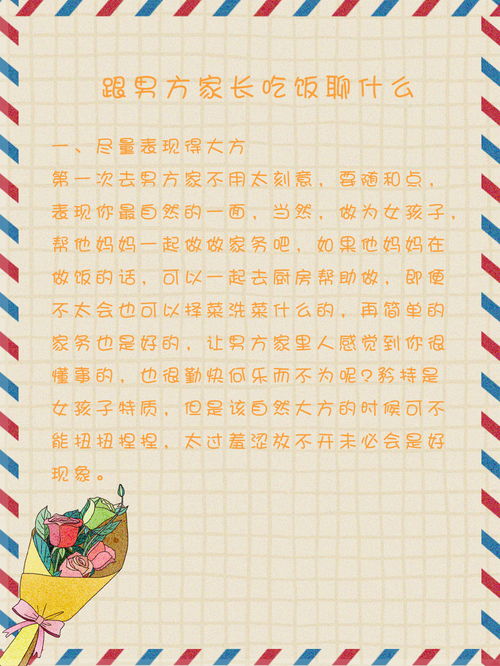 跟男方家长吃饭聊什么
一、尽量表现得大方
第一次去男方家不用太刻意，尊随和点，
表现你最自然的一面，当然，做为女孩子，
帮他妈妈一起做做家务吧，如果他妈妈在
做饭的话，可以一起去厨房帮助做，即便
不太会也可以择菜洗菜什么的，再简单的
家务也是好的，让男方家里人感觉到你很
懂事的，也很勤快何乐而不为呢?矜持是
女孩子特质，但是该自然大方的时候可不
能扭扭捏捏，太过羞涩放不开未必会是好
现象。